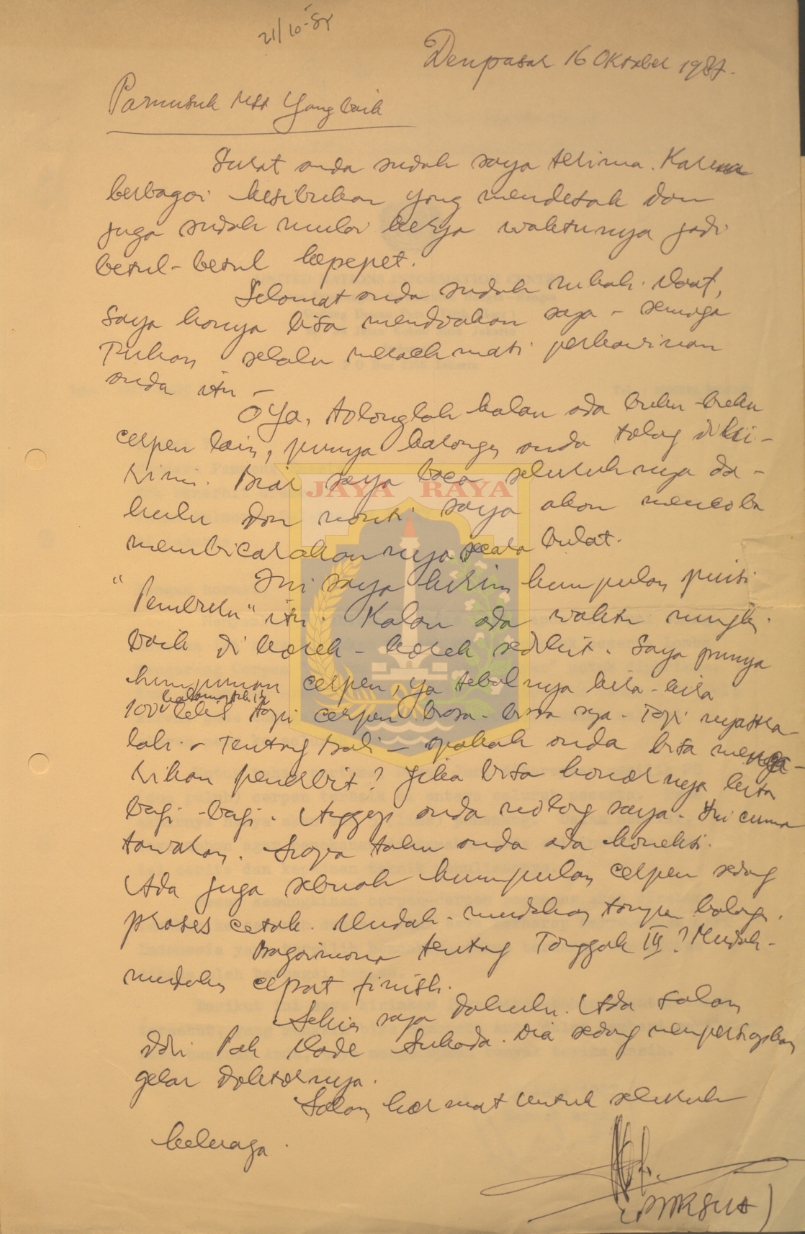 21/10-87
Denpasar 16 Oktober 1987.
Pamusuk yang baik
Surat anda sudah saya terima. Karena
berbagai kesibukan yang mendesak dan
juga sudah mulai kerja waktunya jadi
betul-betul kepepet.
Selamat anda sudah nikah. Maaf,
saya hanya bisa mendoakan saja - semoga
Tuhan selalu merachmati perkawinan
anda itu -
Oya, tolonglah kalau ada buku-buku
cerpen lain, punya karangan anda tolong diki-
rimi. Biar saya baca seluruhnya da-
hulu dan nanti saya akan mencoba
membicarakannya secara bulat.
JAYA RAYA
Ini saya kirim kumpulan puisi
"Pemburu" itu. Kalau ada waktu mungkin
baik di korek-korek sedikit. Saya punya
himpunan cerpen, ya tebalnya kira-kira
100 halaman tapi cerpen biasa-biasa saja. Tapi
- Tentang Bali - apakah anda bisa menca-
rikan penerbit? Jika bisa honornya kita
bagi-bagi. Anggap anda nolong saya. Ini cuma
tawaran. Siapa tahu anda ada koneksi.
Ada juga sebuah kumpulan cerpen sedang
proses cetak. Mudah-mudahan tanpa halangan.
Bagaimana tentang Tonggak III? Mudah-
mudahan cepat finish.
Sekian saja dahulu. Ada salam
dari Pak Made Sukada. Dia sedang mempersiapkan
gelar doktornya.
Salam hormat untuk seluruh
keluarga.